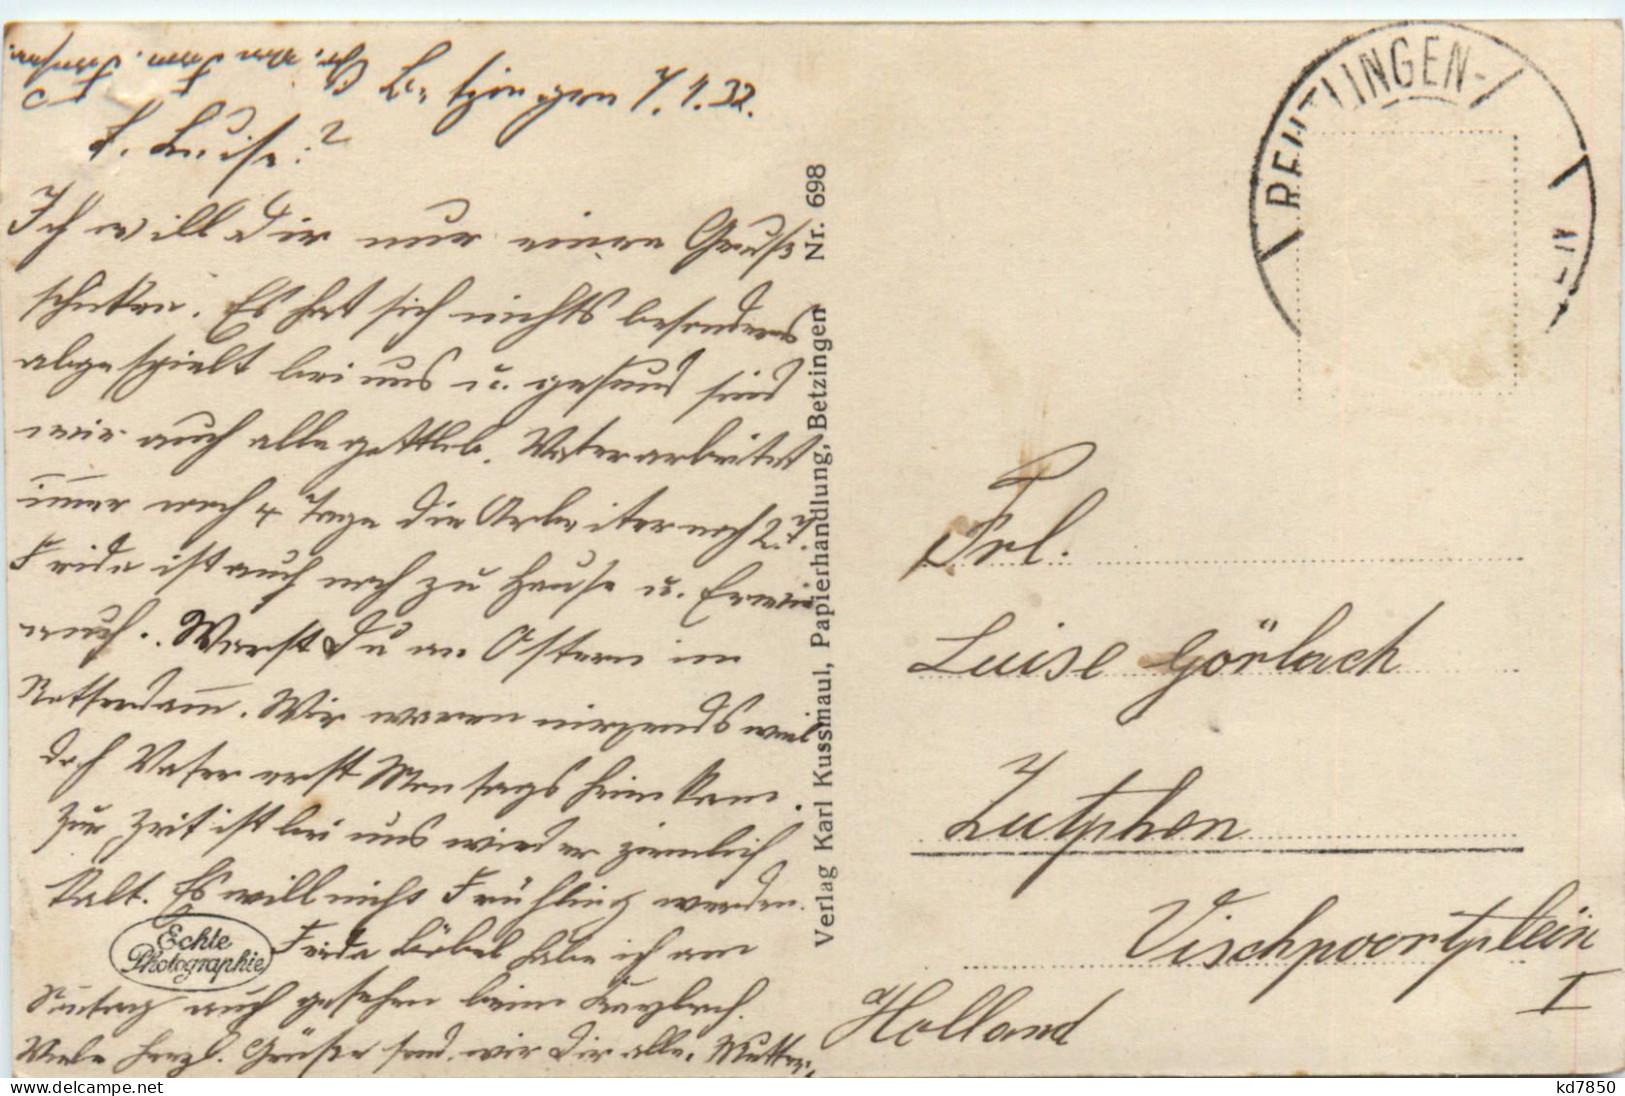 Betzingen 7.4.32.
L. Luise!
Ich will Dir nur einen Gruß
schicken. Es hat sich nichts besonders
abgespielt bei uns u. gesund sind
wir auch alle gottlob. Vater arbeitet
immer noch 4 Tage die Arbeiter noch 2 T.
Fride ist auch noch zu Hause u. Erwin
auch. Warst Du an Ostern in
Wir waren nirgends weil
doch Vater erst Montags heim kam.
Zur Zeit ist bei uns wieder ziemlich
kalt. Es will nicht Frühling werden.
Frida habe ich am
Sontag auch gesehen beim
Viele herzl. Grüße send. wir Dir alle. Mutter,
Echte
Photographie
Verlag Karl Kussmaul, Papierhandlung, Betzingen Nr. 698
REUTLINGEN-
Frl.
Luise Görlach
Zutphen
Vischpoortplein
I
Holland
www.delcampe.net
kd7850